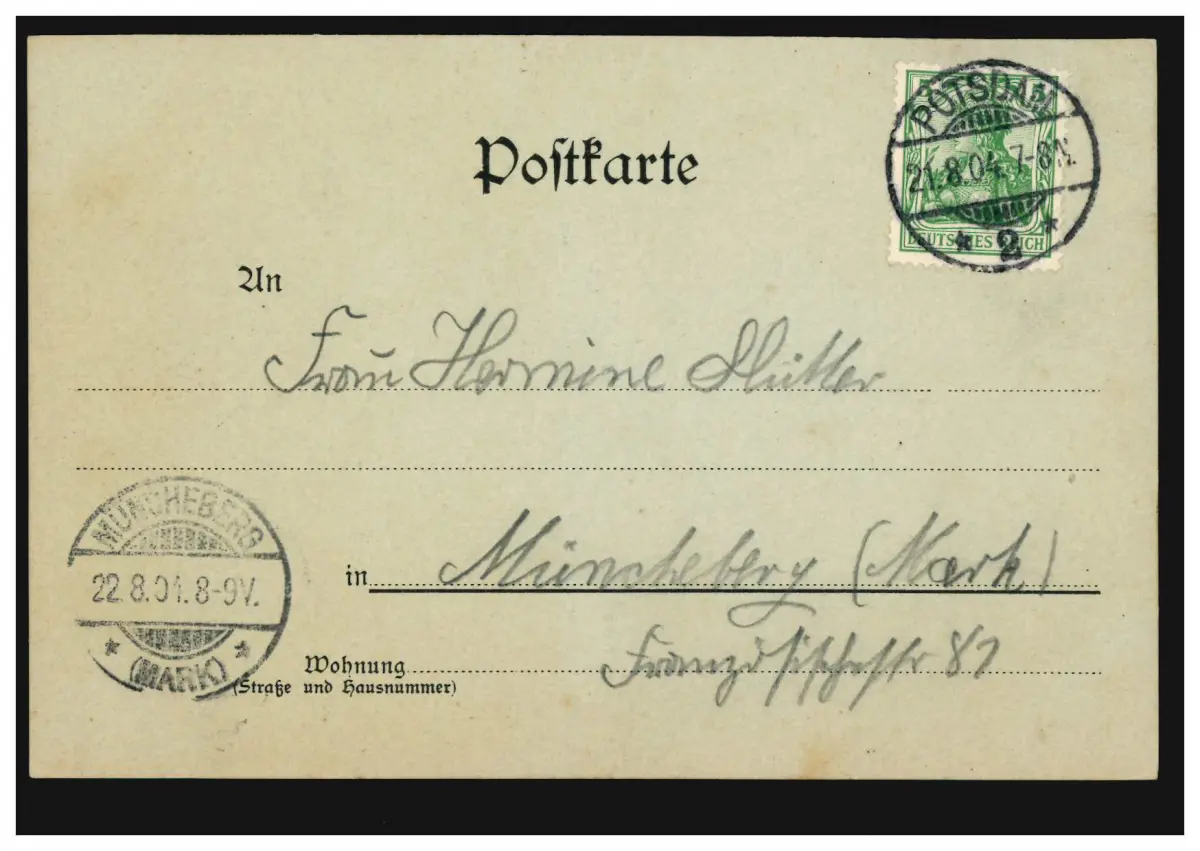 POTSDAM
21.8.04. 7-8N.
* 2 *
DEUTSCHES REICH
Postkarte
An
Frau Hermine
in Müncheberg (Mark)
Wohnung
(Straße und Hausnummer)
Französischestr 81
MÜNCHEBERG
22.8.04. 8-9V.
* (MARK) *